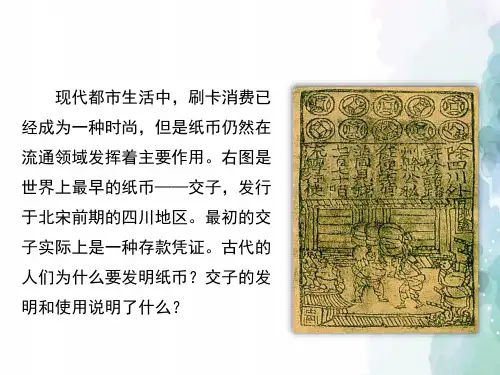 现代都市生活中，刷卡消费已
经成为一种时尚，但是纸币仍然在
流通领域发挥着主要作用。右图是
世界上最早的纸币——交子，发行
于北宋前期的四川地区。最初的交
子实际上是一种存款凭证。古代的
人们为什么要发明纸币？交子的发
明和使用说明了什么？
除四川外